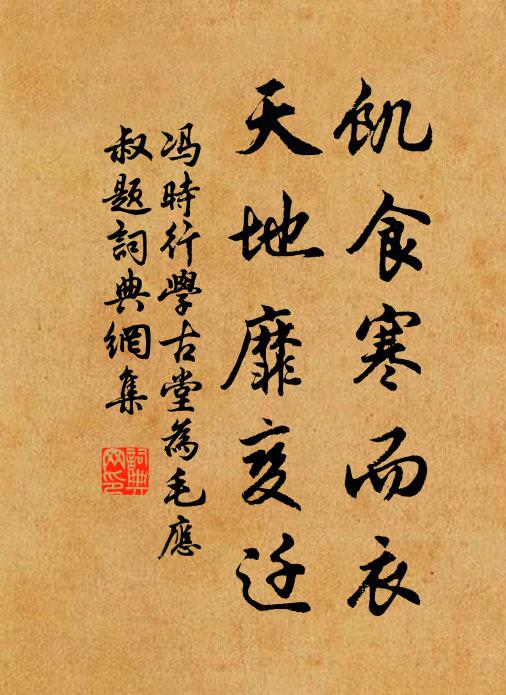 飢食寒而衣
天地靡变迁
冯時行學古堂為毛應
叔题詞典網集
詞典网印